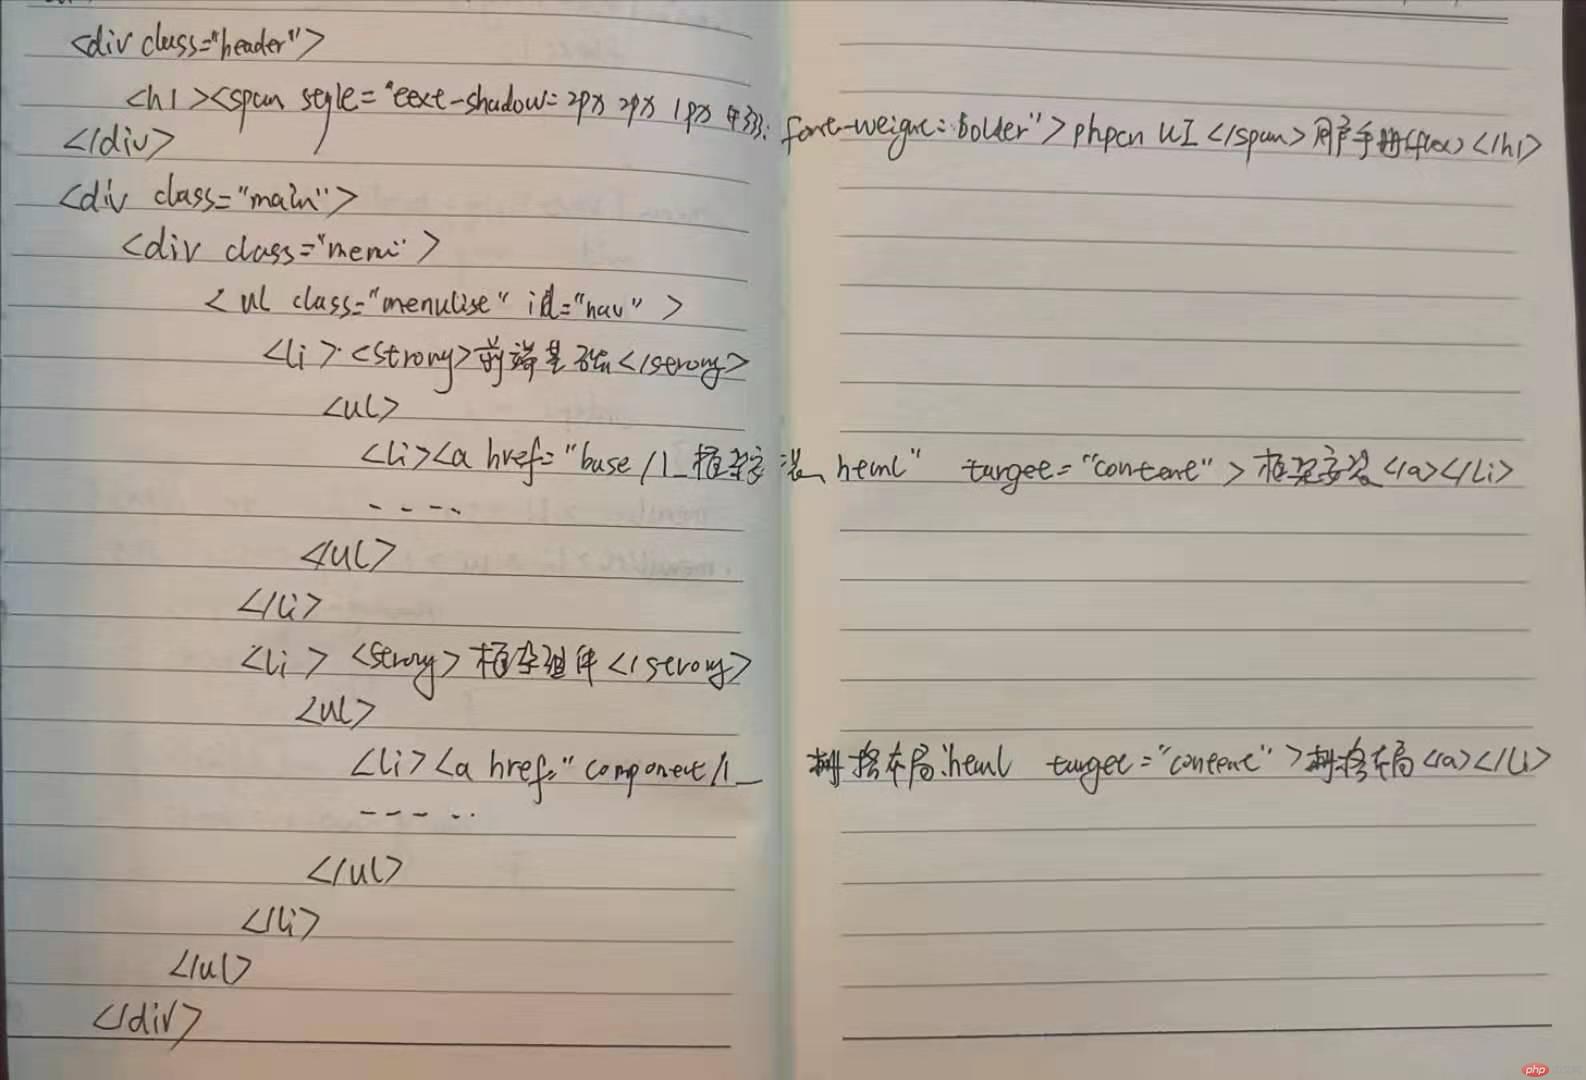 <div class="header">
<h1><span style="text-shadow: 2px 2px 1px #333; font-weight: bolder">phpcn UI</span>用户手册(flex)</h1>
</div>
<div class="main">
<div class="menu">
<ul class="menulist" id="nav">
<li><strong>前端基础</strong>
<ul>
<li><a href="base/1_框架安装.html" target="content">框架安装</a></li>
- - - - -
</ul>
</li>
<li><strong>框架组件</strong>
<ul>
<li><a href="component/1_栅格布局.html target="content">栅格布局</a></li>
- - - - -
</ul>
</li>
</ul>
</div>
php